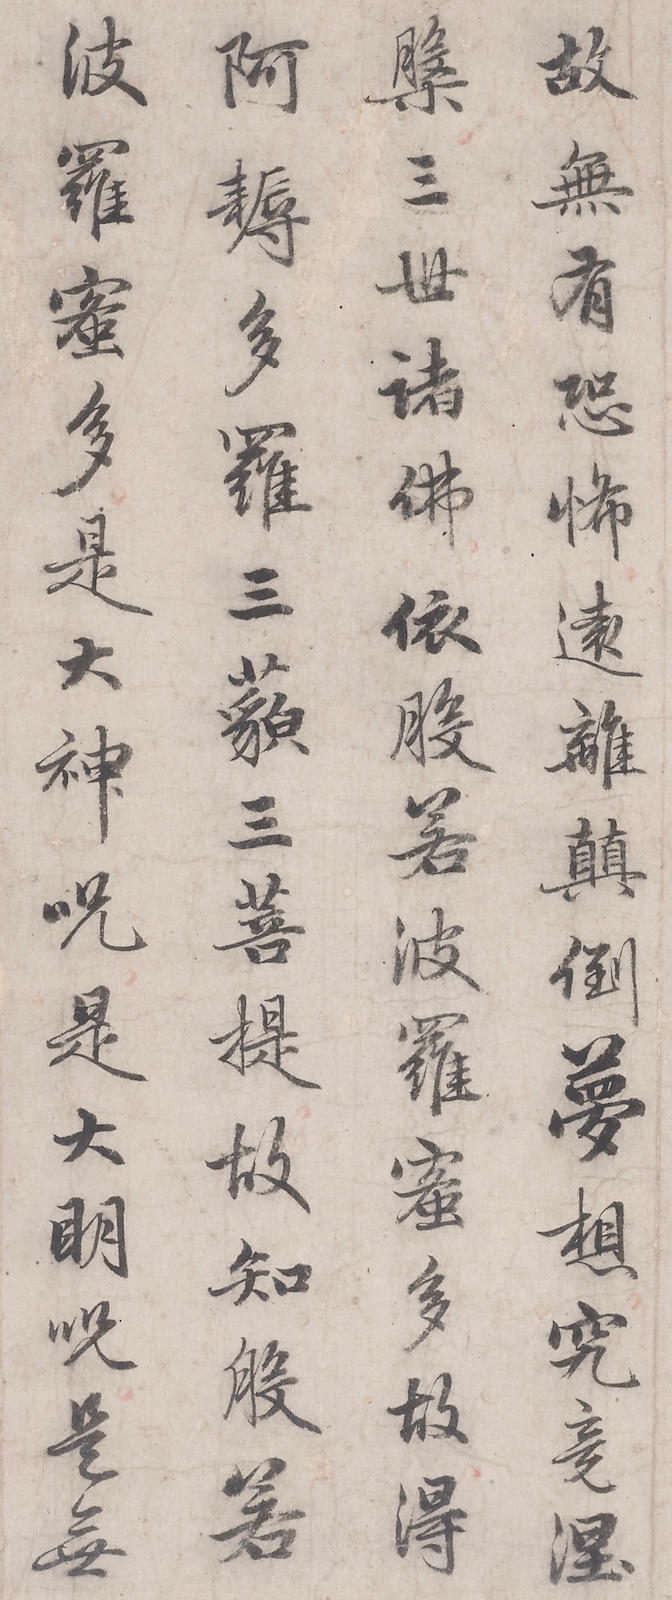 故無有恐怖遠離顛倒夢想究竟涅
槃三世諸佛依般若波羅蜜多故得
阿耨多羅三藐三菩提故知般若
波羅蜜多是大神咒是大明咒是無